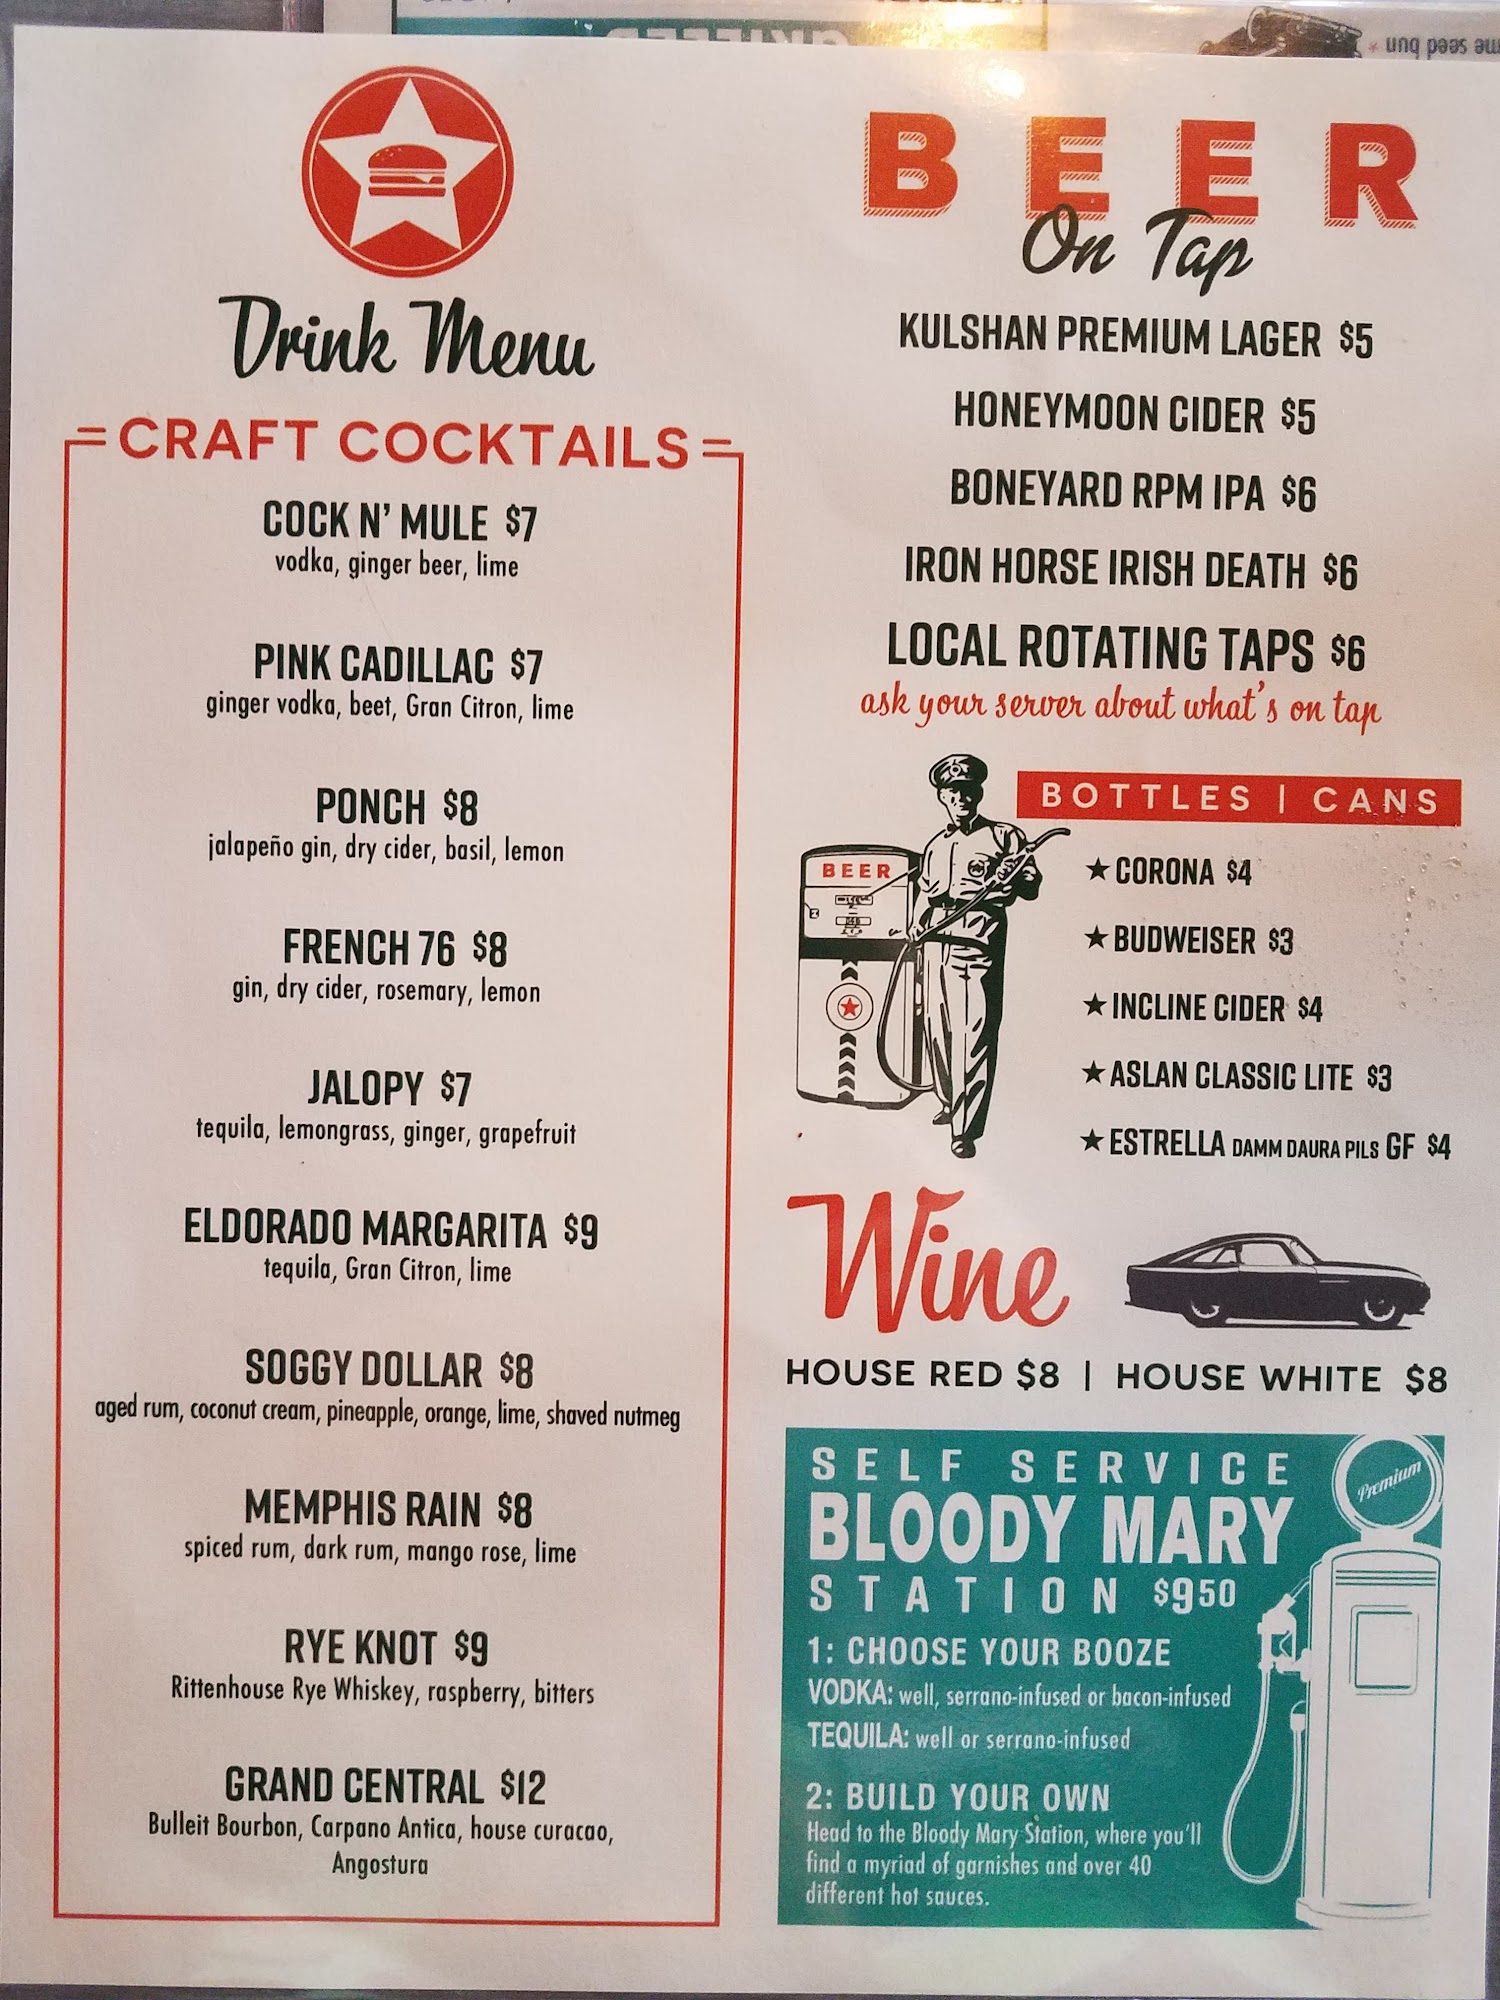 me seed bun *
Drink Menu
CRAFT COCKTAILS
COCK N' MULE $7
vodka, ginger beer, lime
PINK CADILLAC $7
ginger vodka, beet, Gran Citron, lime
PONCH $8
jalapeño gin, dry cider, basil, lemon
FRENCH 76 $8
gin, dry cider, rosemary, lemon
JALOPY $7
tequila, lemongrass, ginger, grapefruit
ELDORADO MARGARITA $9
tequila, Gran Citron, lime
SOGGY DOLLAR $8
aged rum, coconut cream, pineapple, orange, lime, shaved nutmeg
MEMPHIS RAIN $8
spiced rum, dark rum, mango rose, lime
RYE KNOT $9
Rittenhouse Rye Whiskey, raspberry, bitters
GRAND CENTRAL $12
Bulleit Bourbon, Carpano Antica, house curacao,
Angostura
BEER
On Tap
KULSHAN PREMIUM LAGER $5
HONEYMOON CIDER $5
BONEYARD RPM IPA $6
IRON HORSE IRISH DEATH $6
LOCAL ROTATING TAPS $6
ask your server about what's on tap
BEER
BOTTLES | CANS
★ CORONA $4
★ BUDWEISER $3
★ INCLINE CIDER $4
★ ASLAN CLASSIC LITE $3
★ ESTRELLA DAMM DAURA PILS GF $4
Wine
HOUSE RED $8 | HOUSE WHITE $8
SELF SERVICE
BLOODY MARY
STATION $950
Premium
1: CHOOSE YOUR BOOZE
VODKA: well, serrano-infused or bacon-infused
TEQUILA: well or serrano-infused
2: BUILD YOUR OWN
Head to the Bloody Mary Station, where you'll
find a myriad of garnishes and over 40
different hot sauces.